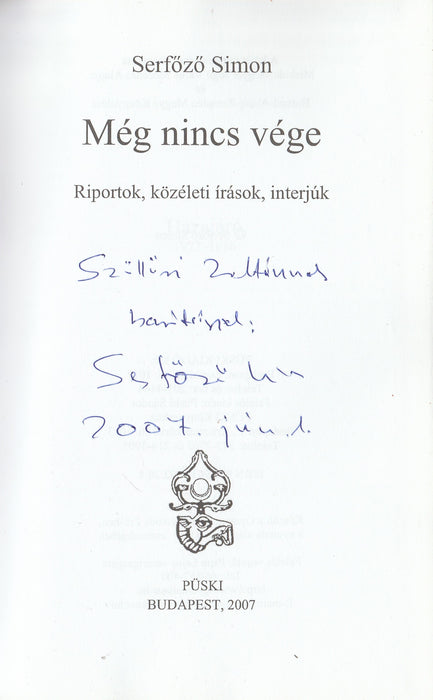 Serfőző Simon
Még nincs vége
Riportok, közéleti írások, interjúk
Szöllősi Zoltánnak
barátsággal:
Serfőző Simon
2007. jún. 1.
PÜSKI
BUDAPEST, 2007